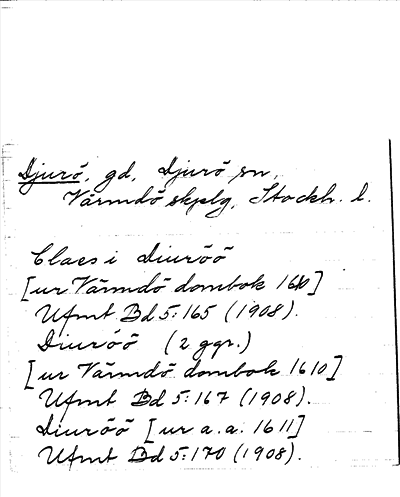 Djurö, gd, Djurö sn,
Värmdö skplg, Stockh. l.
Claes i Diuröö
[ur Värmdö dombok 1610]
Ufmt Bd 5:165 (1908).
Diuröö (2 ggr.)
[ur Värmdö dombok 1610]
Ufmt Bd 5:167 (1908).
Diuröö [ur a.a. 1611]
Ufmt Bd 5:170 (1908).